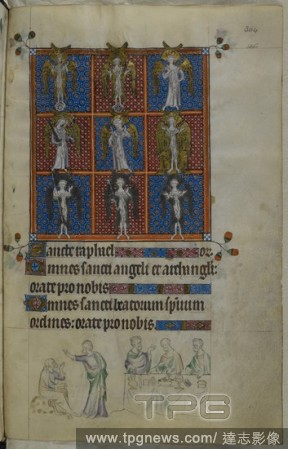 304
Sancte raphael or
Omnes sancti angeli et archangeli
orate pro nobis
Omnes sancti beatorum spirituum
ordines: orate pro nobis
TPG
www.tpgnews.com/ 達志影像